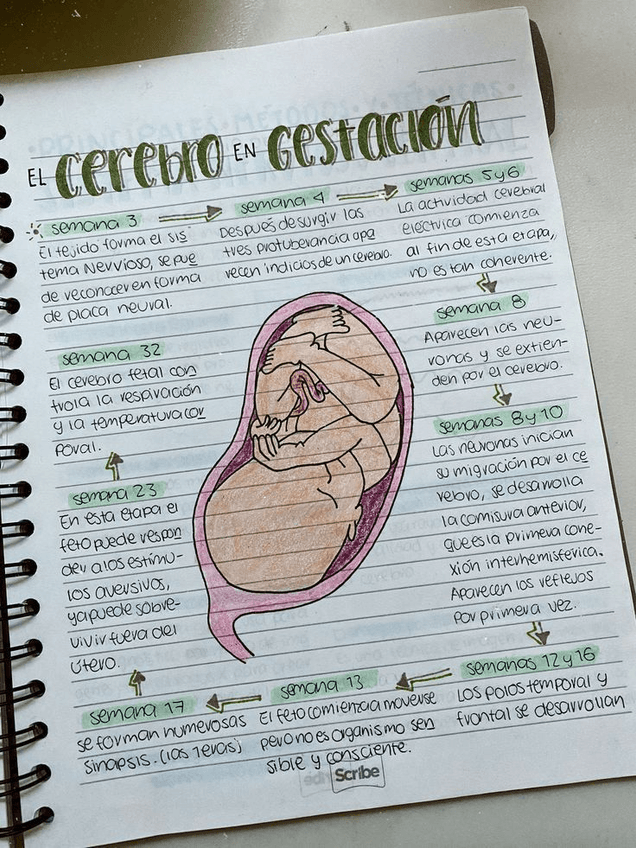 EL CEREBRO EN GESTACIÓN
semana 3
El tejido forma el sis-
tema nervioso, se pue
de reconocer en forma
de placa neural.
semana 4
Después de surgir las
tres protuberancia apa
recen indicios de un cerebro.
semanas 5 y 6
La actividad cerebral
eléctrica comienza
al fin de esta etapa,
no es tan coherente.
semana 8
Aparecen las neu-
ronas y se extien-
den por el cerebro.
semanas 8 y 10
Las neuronas inician
su migración por el ce
rebro, se desarrolla
la comisura anterior,
que es la primera cone-
xión interhemisférica.
Aparecen los reflejos
por primera vez.
semanas 12 y 16
Los polos temporal y
frontal se desarrollan
semana 13
El feto comienza moverse
pero no es organismo sen
sible y consciente.
semana 17
se forman numerosas
sinapsis. (las 1eras)
semana 23
En esta etapa el
feto puede respon
der a los estímu-
los aversivos,
ya puede sobre-
vivir fuera del
útero.
semana 32
El cerebro fetal con
trola la respiración
y la temperatura cor
poral.
Scribe